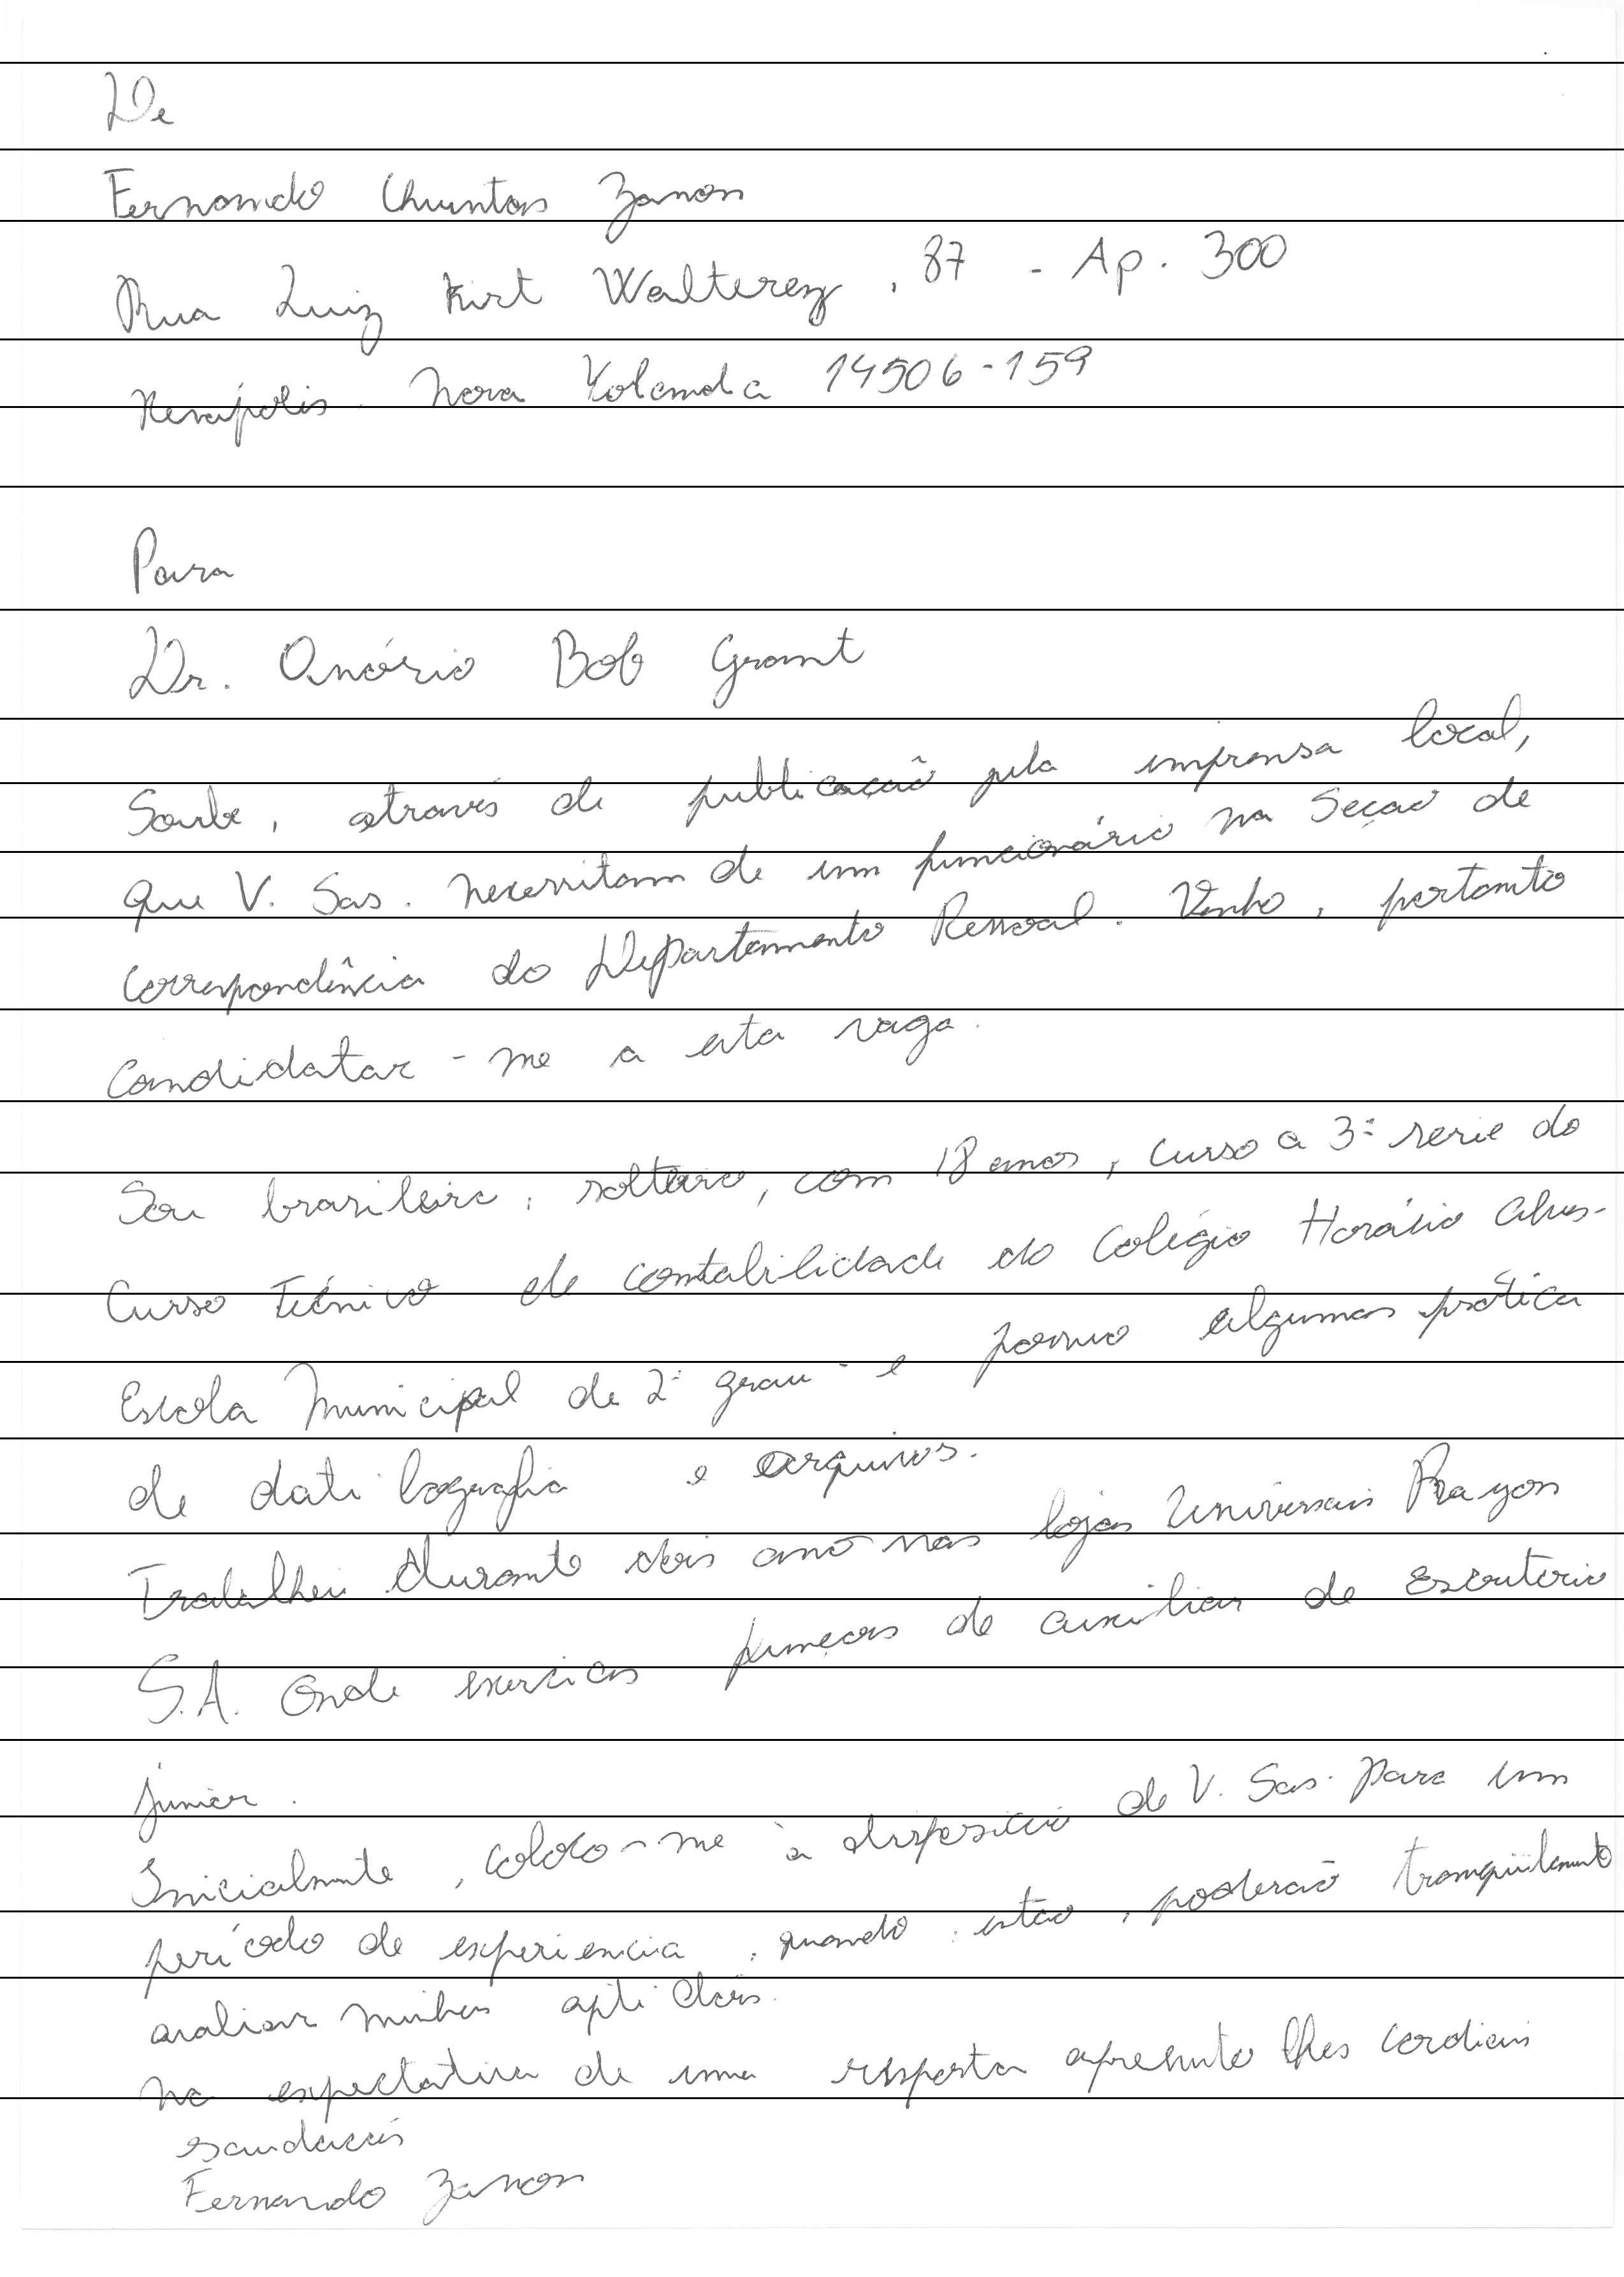 De
Fernando Chuntas Zanon
Rua Luiz Kirt Walterez, 87 - Ap. 300
Xenápolis. Nova Yolanda 14506-159
Para
Dr. Onório Bob Grant
Soube, através de publicação pela imprensa local,
que V. Sas. necessitam de um funcionário na Seçao de
correspondência do Departamento Pessoal. Venho, portanto
candidatar-me a esta vaga.
Sou brasileiro, solteiro, com 18 anos, curso a 3ª serie do
Curso Técnico de contabilidade do Colégio Horácio
Escola Municipal de 2º grau - e possuo algumas prática
de datilografia e arquivos.
Trabalhei durante dois ano nas lojas Universais Rayon
S.A. Onde exercicas funçoes de auxiliar de Escritorio
junior.
Inicialmente, coloco-me à disposição de V. Sas. para um
período de experiencia, quando, entao, poderão tranqüilamente
avaliar minhas aptidões.
na expectativa de uma resposta apresento lhes cordiais
saudações
Fernando Zanon